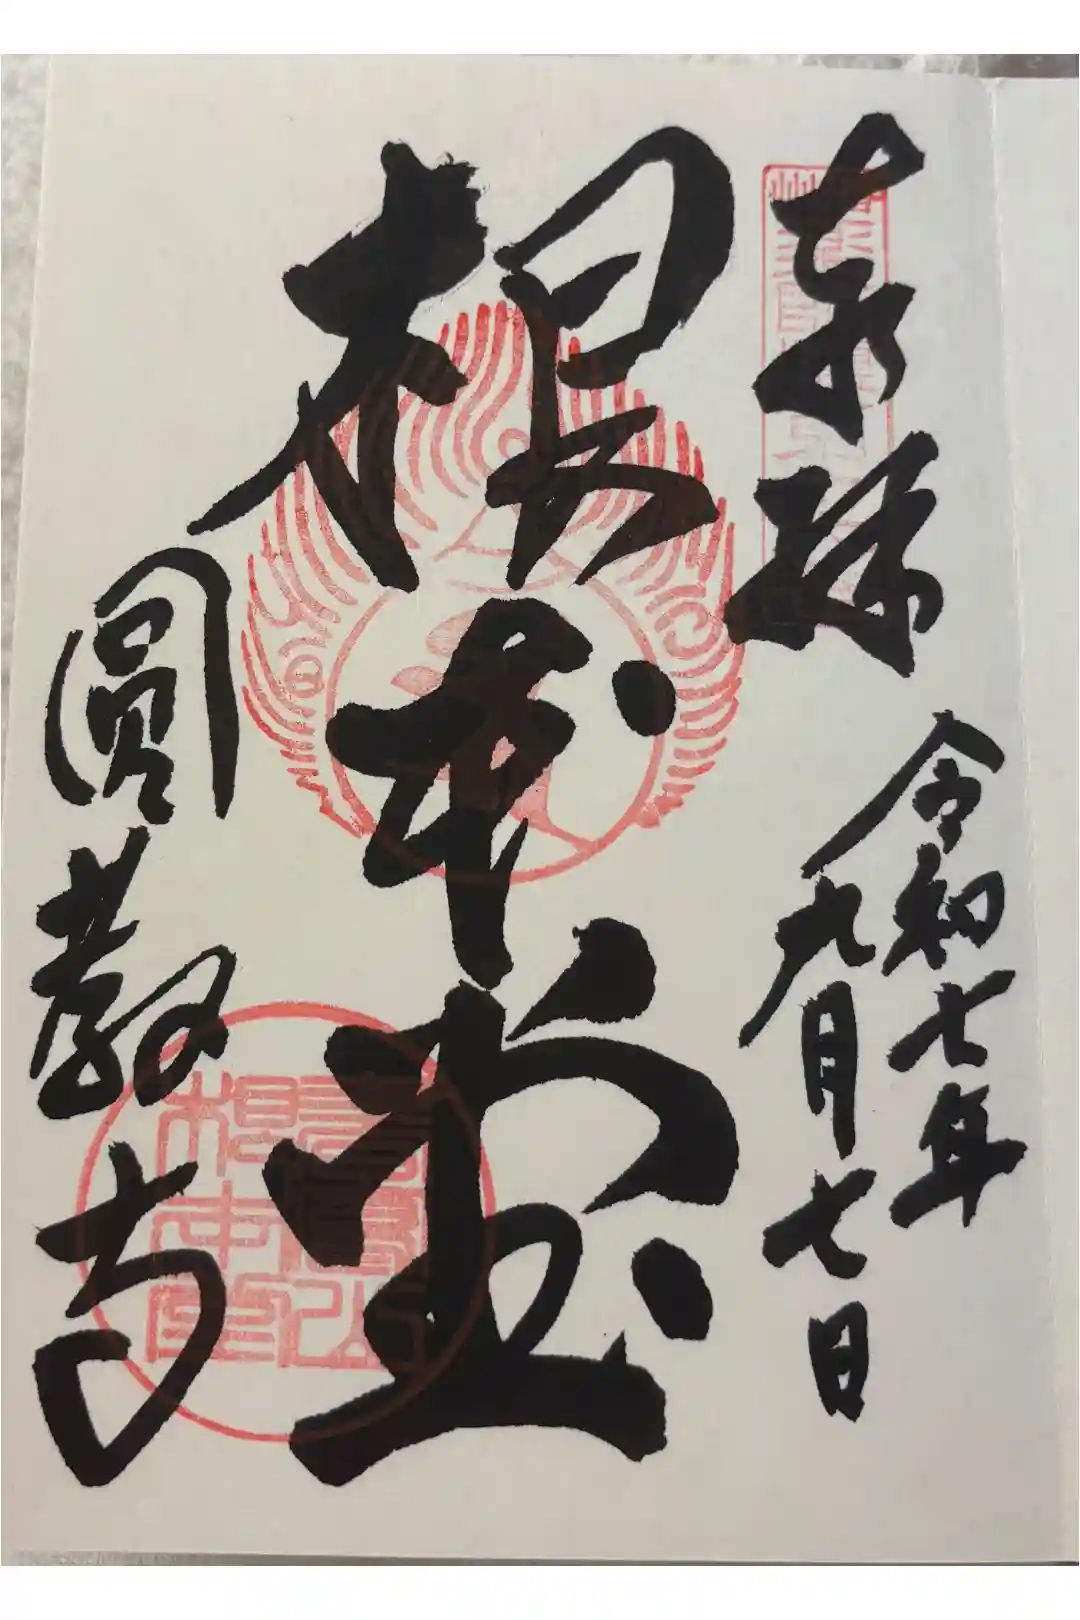 奉拝
令和七年
九月七日
根本堂
圓教寺
根本堂